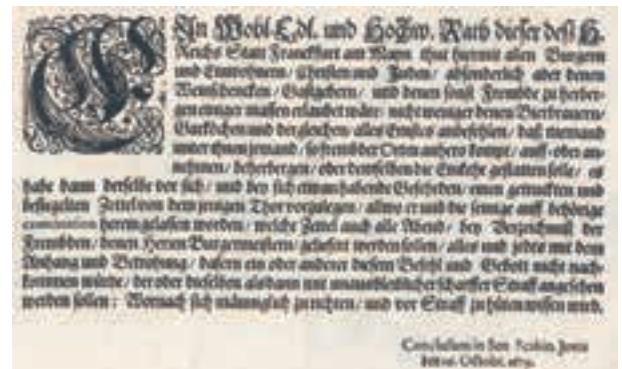 EIn Wohl-Edl. und Hochw. Rath dieser deß H.
Reichs Statt Franckfurt am Mayn thut hiermit allen Burgern
und Einwohnern / Christen und Juden / absonderlich aber denen
Weinschencken / Gastgebern / und denen sonst Frembde zu herber-
gen einiger massen erlaubet wäre / nicht weniger denen Bierbrauern /
Garköchen und dergleichen / alles Ernstes anbefehlen / daß niemand
unter ihnen jemand / so frembder Orten anhero kompt / auff- oder an-
nehmen / beherbergen / oder demselben die Einkehr gestatten solle / es
habe dann derselbe vor sich / und bey sich etwan habende Gefehrden / einen getruckten und
besiegelten Zettel von dem jenigen Thor vorzulegen / allwo er und die seinige auff behörige
examination herein gelassen worden / welche Zettel auch alle Abend / bey Verzeichnuß der
Frembden / denen Herren Burgermeistern / geliefert werden sollen / alles und jedes mit dem
Anhang und Betrohung / dafern ein oder anderer diesem Befehl und Gebott nicht nach-
kommen würde / der oder dieselben alsdann mit unaußbleiblicher scharffer Straff angesehen
werden sollen : Wornach sich männiglich zu richten / und vor Straff zu hüten wissen wird.
Conclusum in den
Octobr.